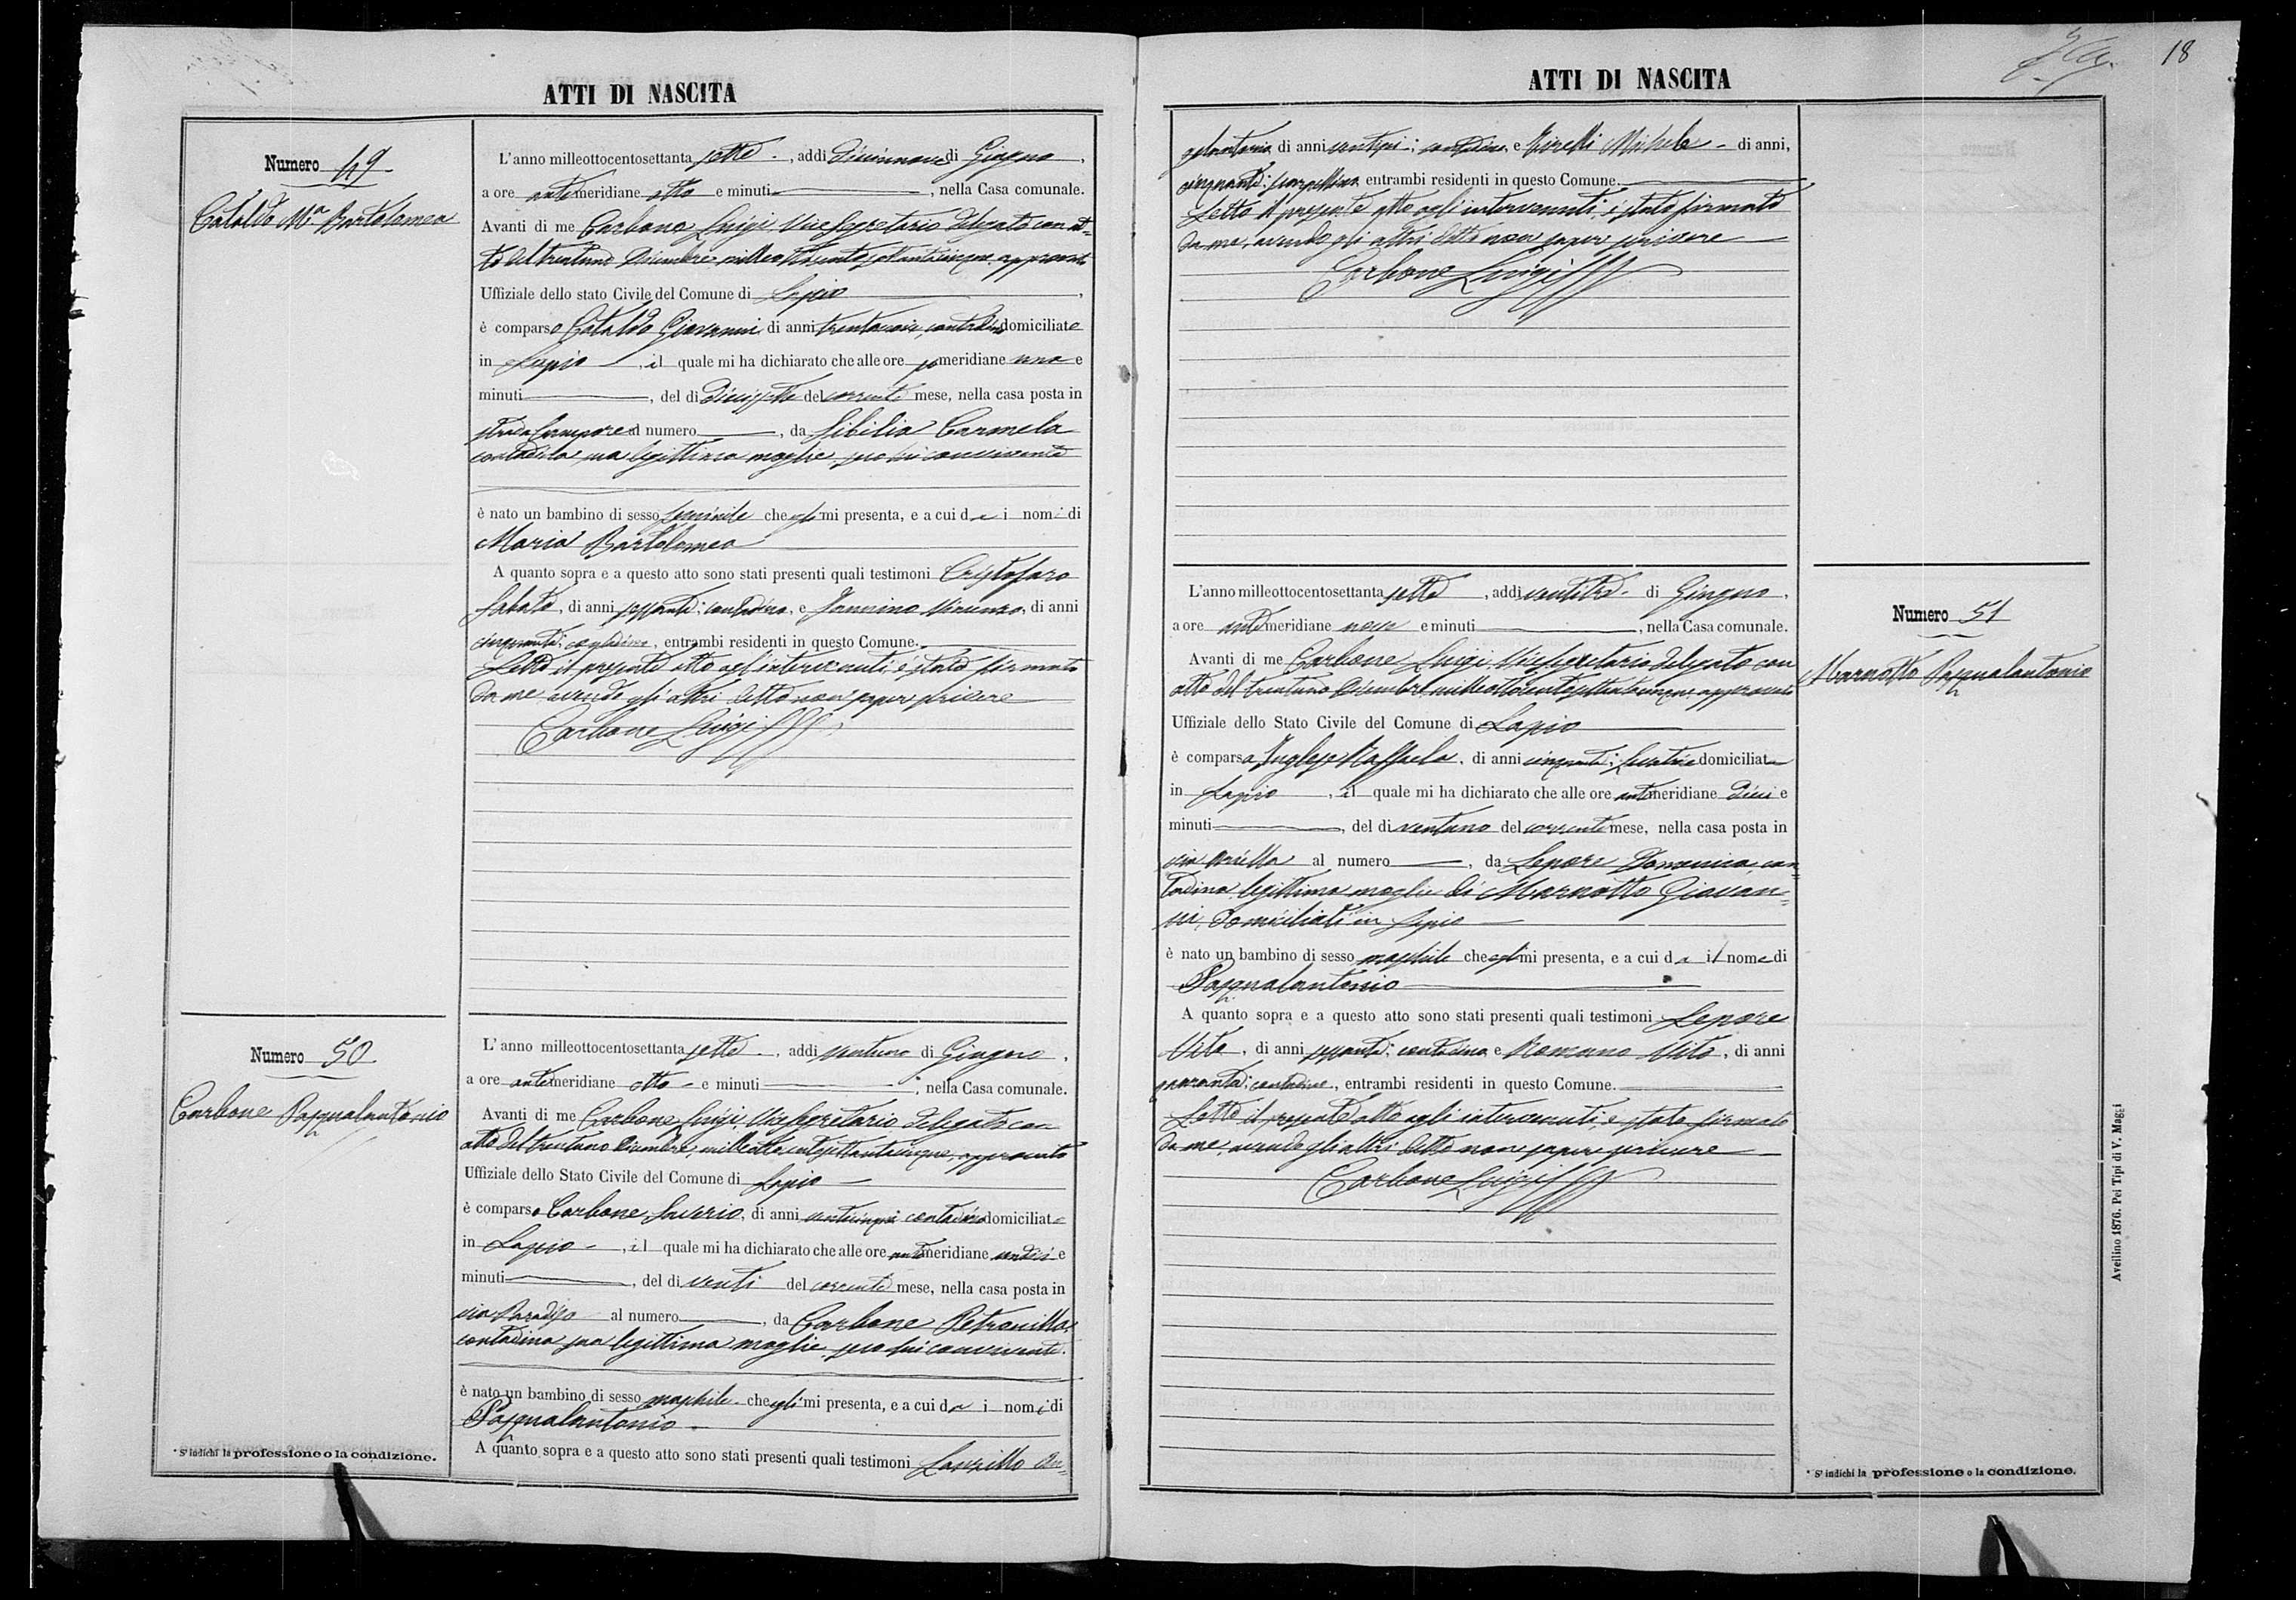 ATTI DI NASCITA
Numero 49
Cataldo Mª Bartolomea
L'anno milleottocentosettanta sette, addì diciannove di Giugno,
a ore antimeridiane otto e minuti, nella Casa comunale.
Avanti di me Carbone Luigi Vice Segretario delegato con at=
to del trentuno Dicembre milleottocentosettantacinque, approvato
Uffiziale dello stato Civile del Comune di Lapio,
è comparso Cataldo Giovanni di anni trentanove, contadino domiciliato
in Lapio, il quale mi ha dichiarato che alle ore pomeridiane una e
minuti, del dì diecisette del corrente mese, nella casa posta in
strada al numero, da Sibilia Carmela
contadina sua legittima moglie, seco lui convivente
è nato un bambino di sesso feminile che egli mi presenta, e a cui da i nomi di
Maria Bartolomea
A quanto sopra e a questo atto sono stati presenti quali testimoni Cristofaro
Sabato, di anni sessanta; contadino, e Iannino Vincenzo, di anni
cinquanta; contadino, entrambi residenti in questo Comune.
Letto il presente atto agl'intervenuti, è stato firmato
da me, avendo gli altri detto non saper scrivere
Carbone Luigi
Numero 50
Carbone Pasqualantonio
L'anno milleottocentosettanta sette, addì ventuno di Giugno,
a ore antimeridiane otto e minuti, nella Casa comunale.
Avanti di me Carbone Luigi Vice Segretario delegato con
atto del trentuno Dicembre milleottocentosettantacinque, approvato
Uffiziale dello Stato Civile del Comune di Lapio
è comparso Carbone Saverio, di anni venticinque contadino domiciliato
in Lapio, il quale mi ha dichiarato che alle ore antimeridiane undici e
minuti, del dì venti del corrente mese, nella casa posta in
via Paradiso al numero, da Carbone Petronilla,
contadina sua legittima moglie, seco lui convivente.
è nato un bambino di sesso maschile che egli mi presenta, e a cui da i nomi di
Pasqualantonio
A quanto sopra e a questo atto sono stati presenti quali testimoni Lanzillo An=
* S'indichi la professione o la condizione.
ATTI DI NASCITA
18
di anni; contadino, e Michele di anni,
cinquanta; scarpellino entrambi residenti in questo Comune.
Letto il presente atto agli intervenuti, è stato firmato
da me, avendo gli altri detto non saper scrivere
Carbone Luigi
Numero 51
Marnotto Pasqualantonio
L'anno milleottocentosettanta sette, addì ventitre di Giugno,
a ore antimeridiane nove e minuti, nella Casa comunale.
Avanti di me Carbone Luigi Vice Segretario delegato con
atto del trentuno Dicembre milleottocentosettantacinque, approvato
Uffiziale dello Stato Civile del Comune di Lapio
è comparsa Inglese Raffaela, di anni cinquanta; levatrice domiciliata
in Lapio, il quale mi ha dichiarato che alle ore antimeridiane dieci e
minuti, del dì ventuno del corrente mese, nella casa posta in
via al numero, da Lepore Domenica, con=
tadina legittima moglie di Marnotto Giovan=
ni, domiciliati in Lapio
è nato un bambino di sesso maschile che egli mi presenta, e a cui da il nome di
Pasqualantonio
A quanto sopra e a questo atto sono stati presenti quali testimoni Lepore
Vito, di anni sessanta; contadino e Romano Vito, di anni
quaranta; contadino, entrambi residenti in questo Comune.
Letto il presente atto agli intervenuti, è stato firmato
da me, avendo gli altri detto non sapere scrivere
Carbone Luigi
* S'indichi la professione o la condizione.
Avellino 1876. Pei Tipi di V. Maggi